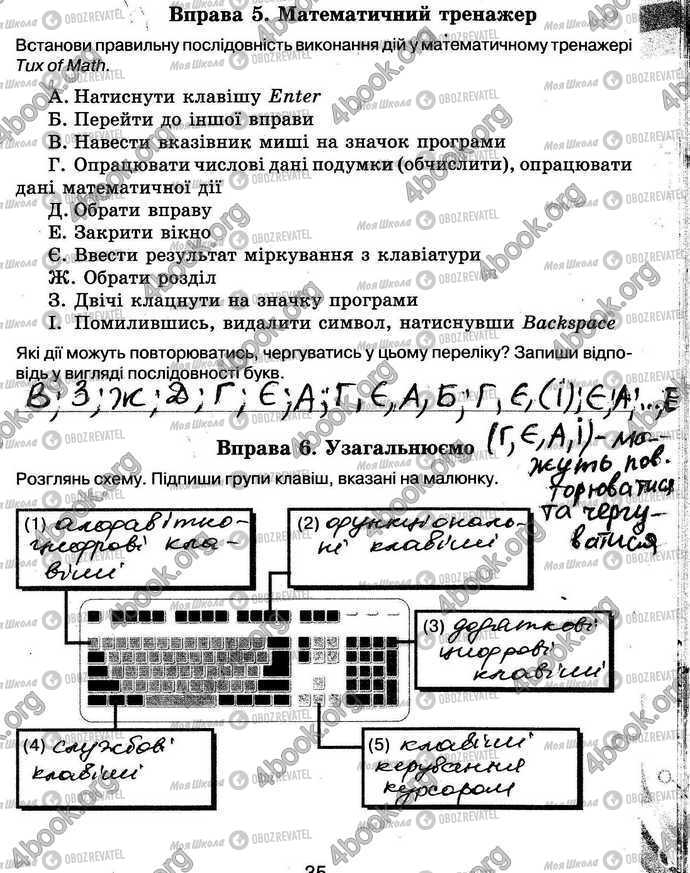 Вправа 5. Математичний тренажер
Встанови правильну послідовність виконання дій у математичному тренажері
Tux of Math.
А. Натиснути клавішу Enter
Б. Перейти до іншої вправи
В. Навести вказівник миші на значок програми
Г. Опрацювати числові дані подумки (обчислити), опрацювати
дані математичної дії
Д. Обрати вправу
Е. Закрити вікно
Є. Ввести результат міркування з клавіатури
Ж. Обрати розділ
З. Двічі клацнути на значку програми
І. Помилившись, видалити символ, натиснувши Backspace
Які дії можуть повторюватись, чергуватись у цьому переліку? Запиши відпо-
відь у вигляді послідовності букв.
В; З; Ж; Д; Г; Є; А; Г, Є, А, Б; Г, Є, (і); Є; А; ..., Е
(Г, Є, А, і) - мо-
жуть пов.
торюватися
та чергу-
ватися
Вправа 6. Узагальнюємо
Розглянь схему. Підпиши групи клавіш, вказані на малюнку.
(1) алфавітно-
цифрові кла-
віші
(2) функціональ-
ні клавіші
(3) додаткові
цифрові
клавіші
(4) службові
клавіші
(5) клавіші
керування
курсором
35